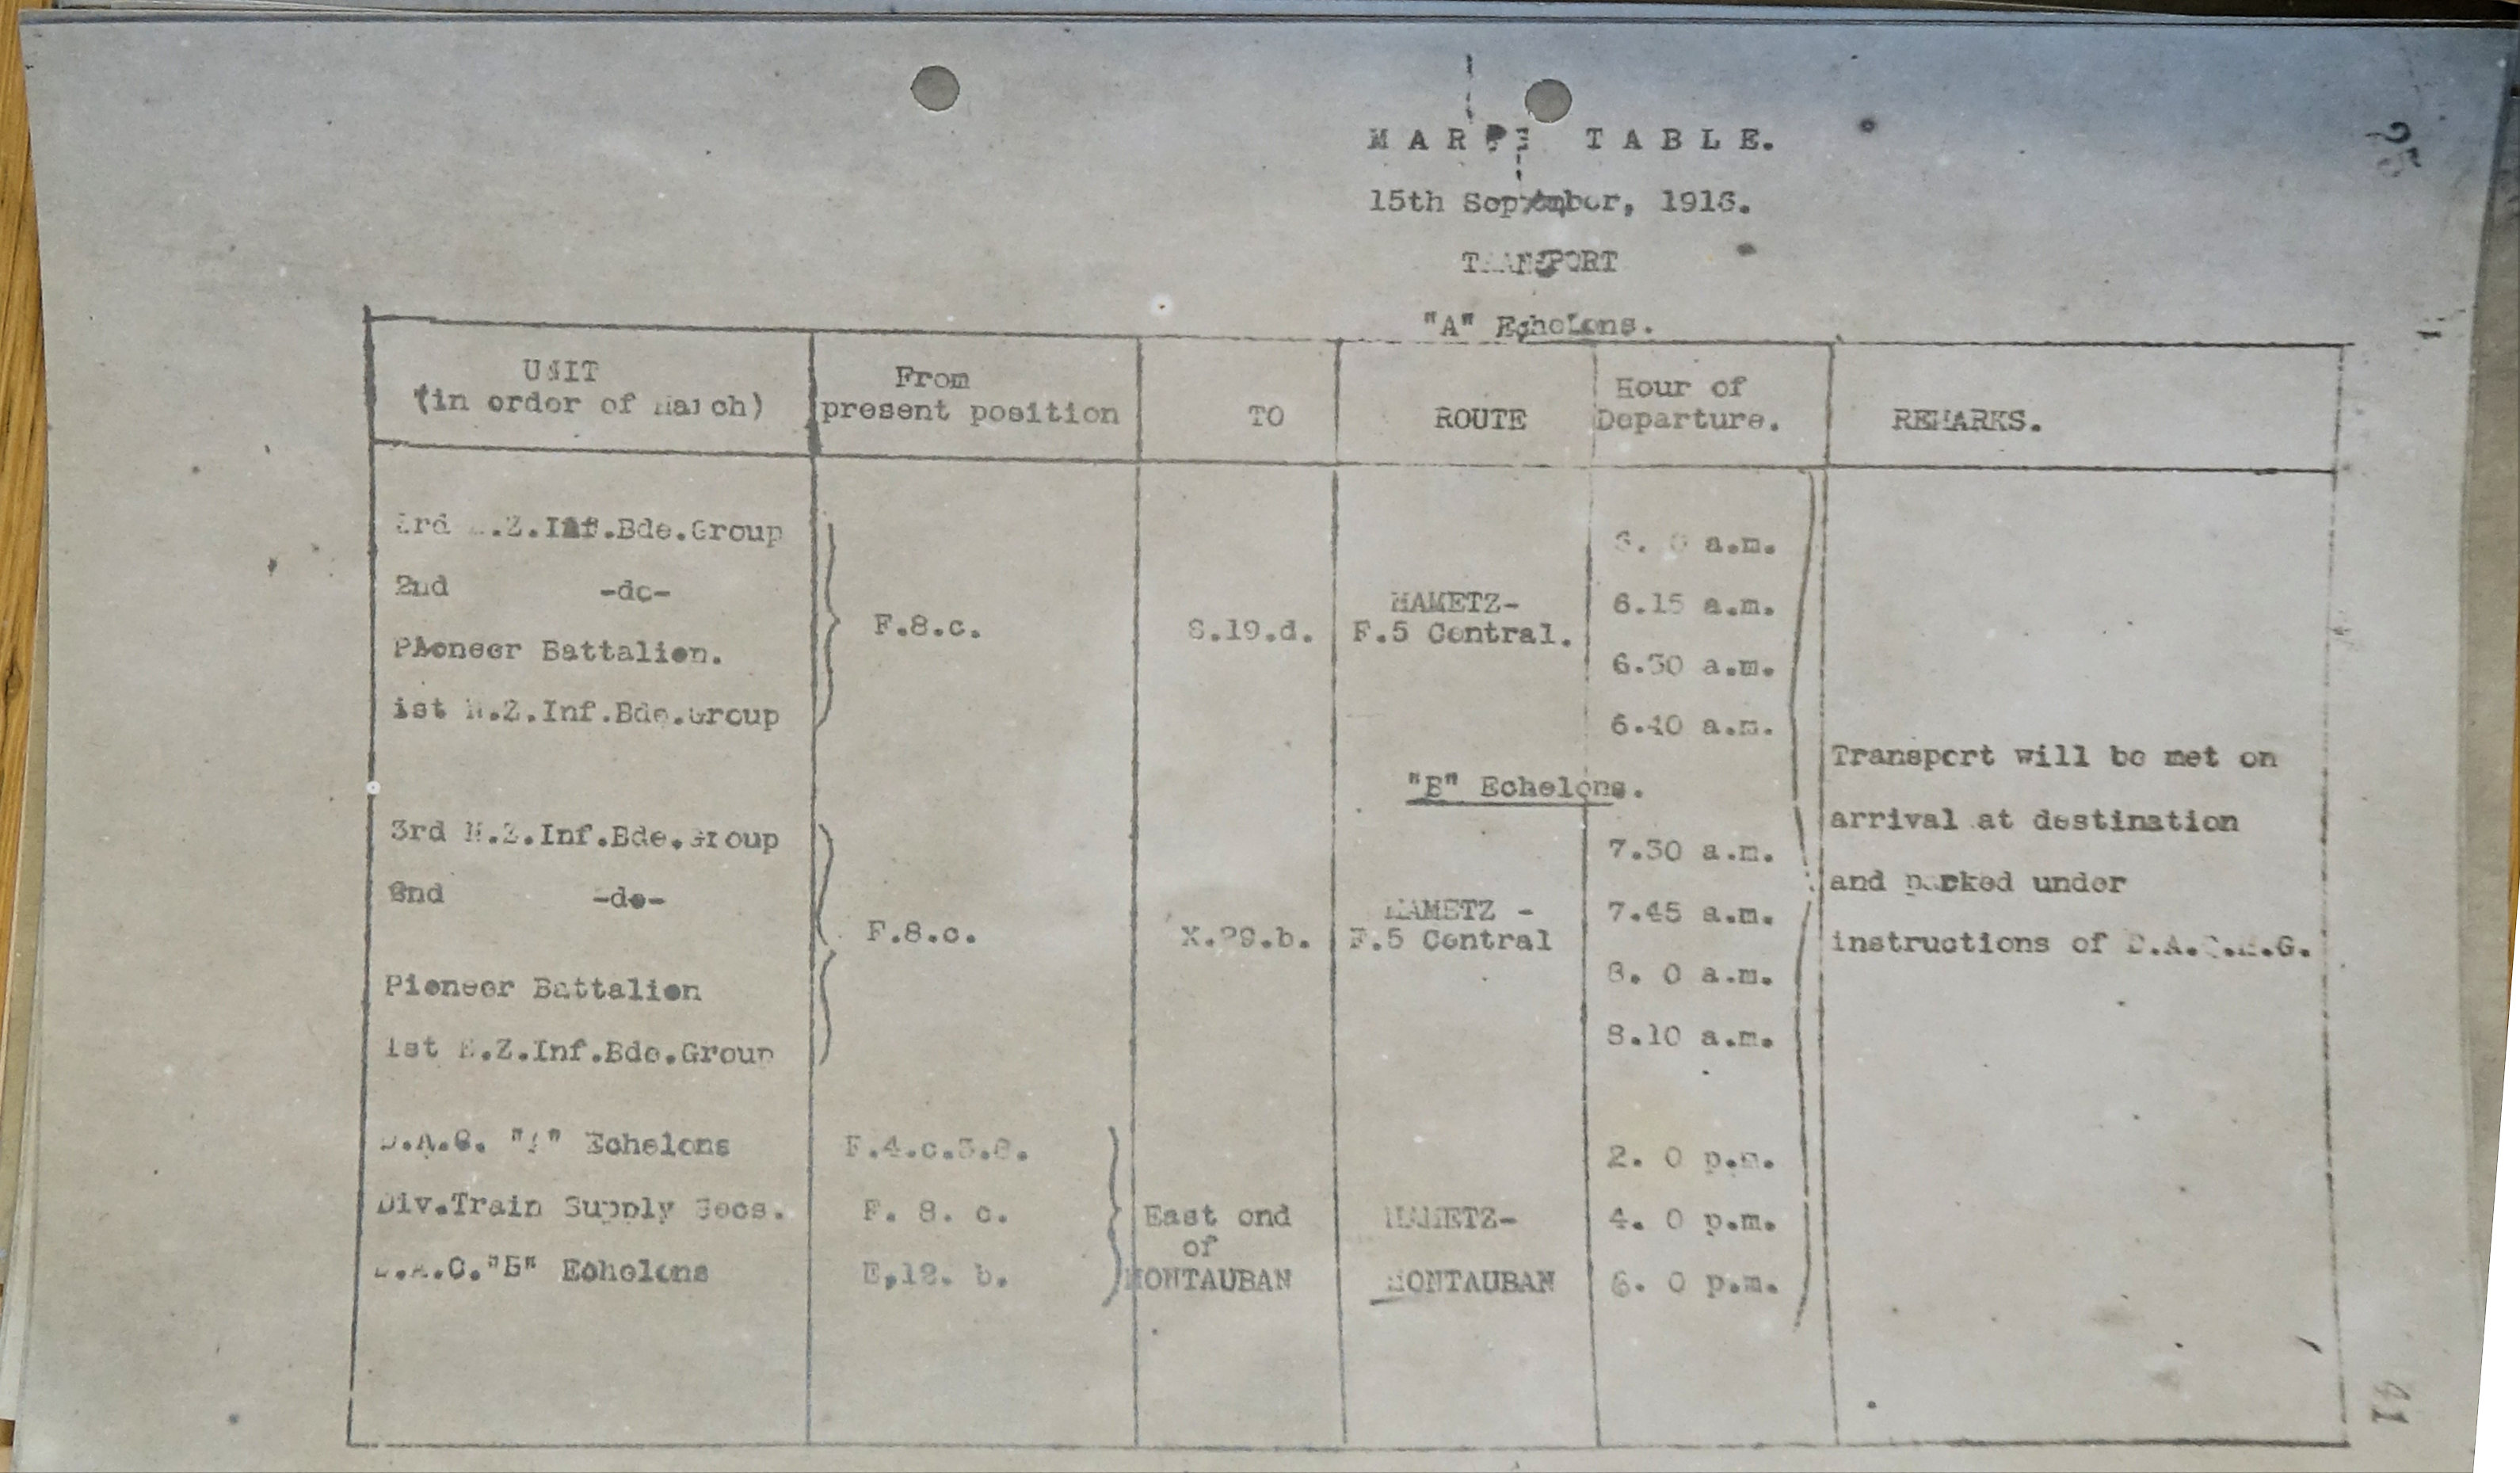 TABLE.
15th September, 1916.
TRANSPORT
"A" Echelons.
UNIT
(in order of March)
From
present position
TO
ROUTE
Hour of
Departure.
REMARKS.
3rd N.Z.Inf.Bde.Group
2nd -do-
Pioneer Battalion.
1st N.Z.Inf.Bde.Group
F.8.c.
S.19.d.
MAMETZ-
F.5 Central.
6. 0 a.m.
6.15 a.m.
6.30 a.m.
6.40 a.m.
"B" Echelons.
3rd N.Z.Inf.Bde.Group
2nd -do-
Pioneer Battalion
1st N.Z.Inf.Bde.Group
F.8.c.
X.29.b.
MAMETZ -
F.5 Central
7.30 a.m.
7.45 a.m.
8. 0 a.m.
8.10 a.m.
Transport will be met on
arrival at destination
and parked under
instructions of D.A.Q.M.G.
"A" Echelons
Div.Train Supply Secs.
D.A.C."B" Echelons
F. 8. c.
E.12. b.
East end
of
MONTAUBAN
MAMETZ-
MONTAUBAN
2. 0 p.m.
4. 0 p.m.
6. 0 p.m.
25
41